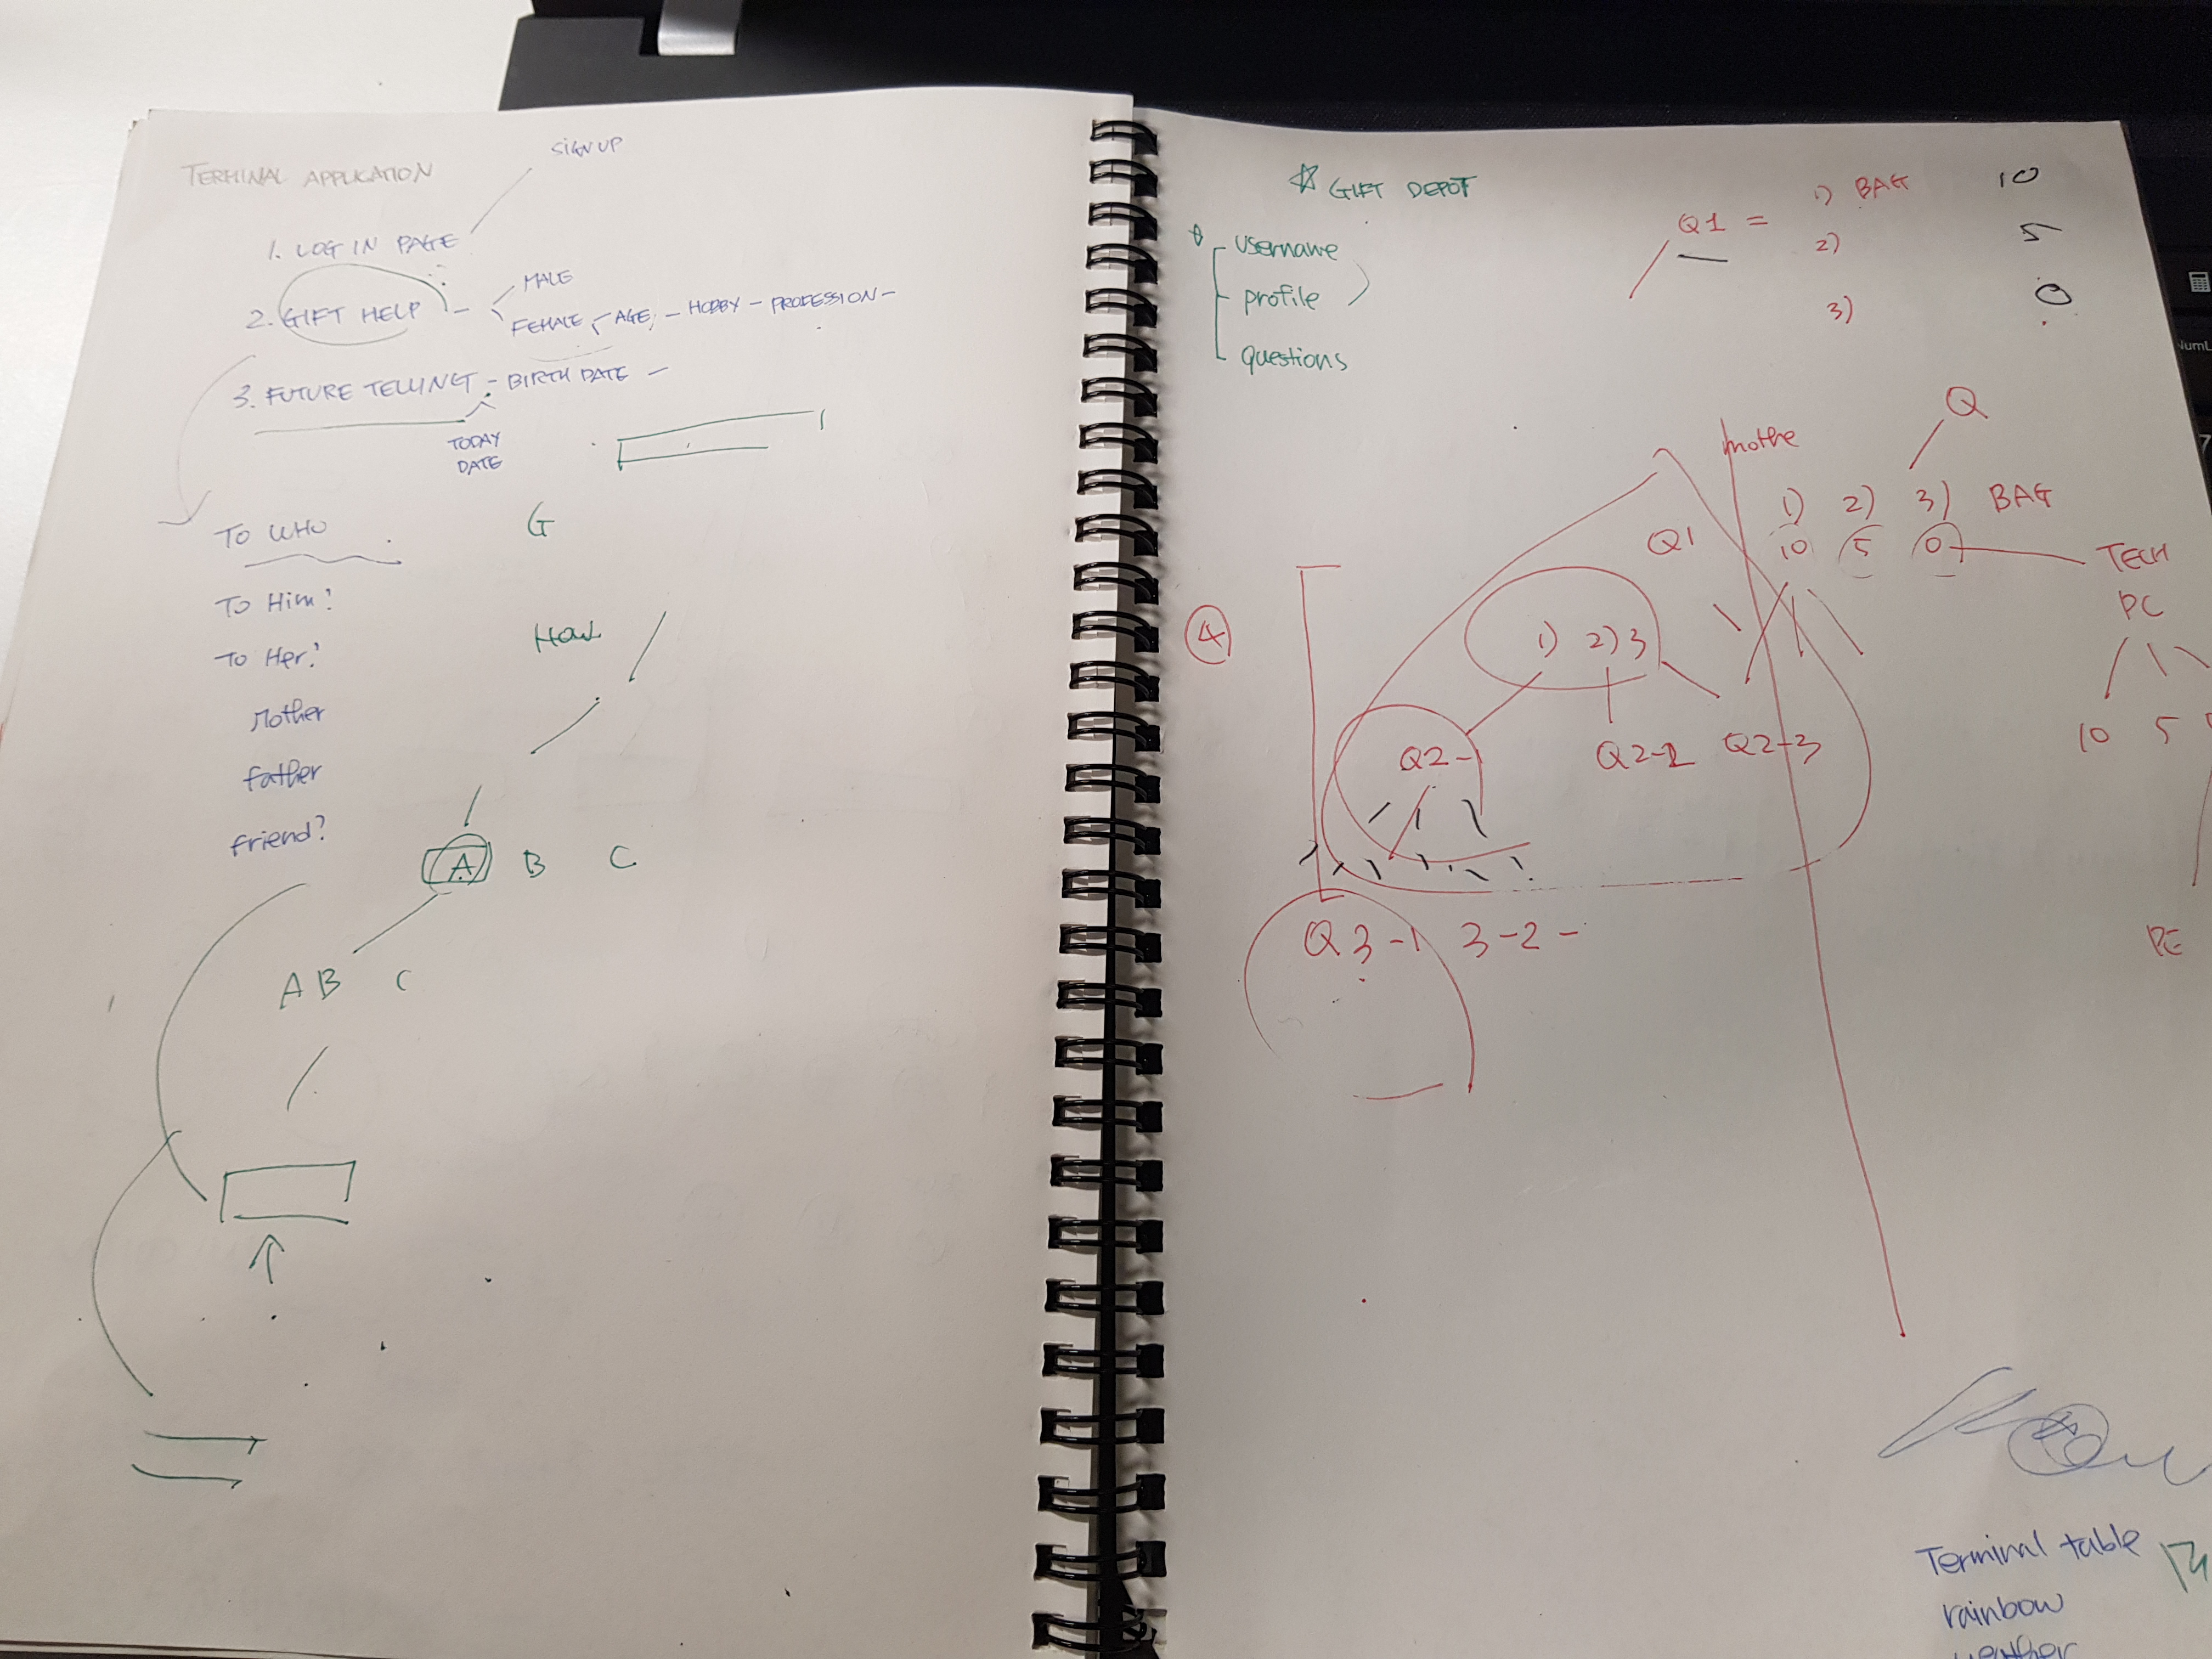 TERMINAL APPLICATION
SIGN UP
1. LOG IN PAGE
MALE
2. GIFT HELP - FEMALE - AGE, - HOBBY - PROFESSION -
3. FUTURE TELLING - BIRTH DATE -
TODAY
DATE
TO WHO
G
To Him?
To Her?
Mother
father
friend?
A B C
A B C
☆ GIFT DEPOT
username
profile
questions
1) BAG 10
Q1 = 2) 5
3) 0
Q
mothe
1) 2) 3) BAG
Q1 10 5 0 TECH
PC
4
1) 2) 3
Q2-1 Q2-2 Q2-3
10 5
Q3-1 3-2 -
Terminal table
rainbow